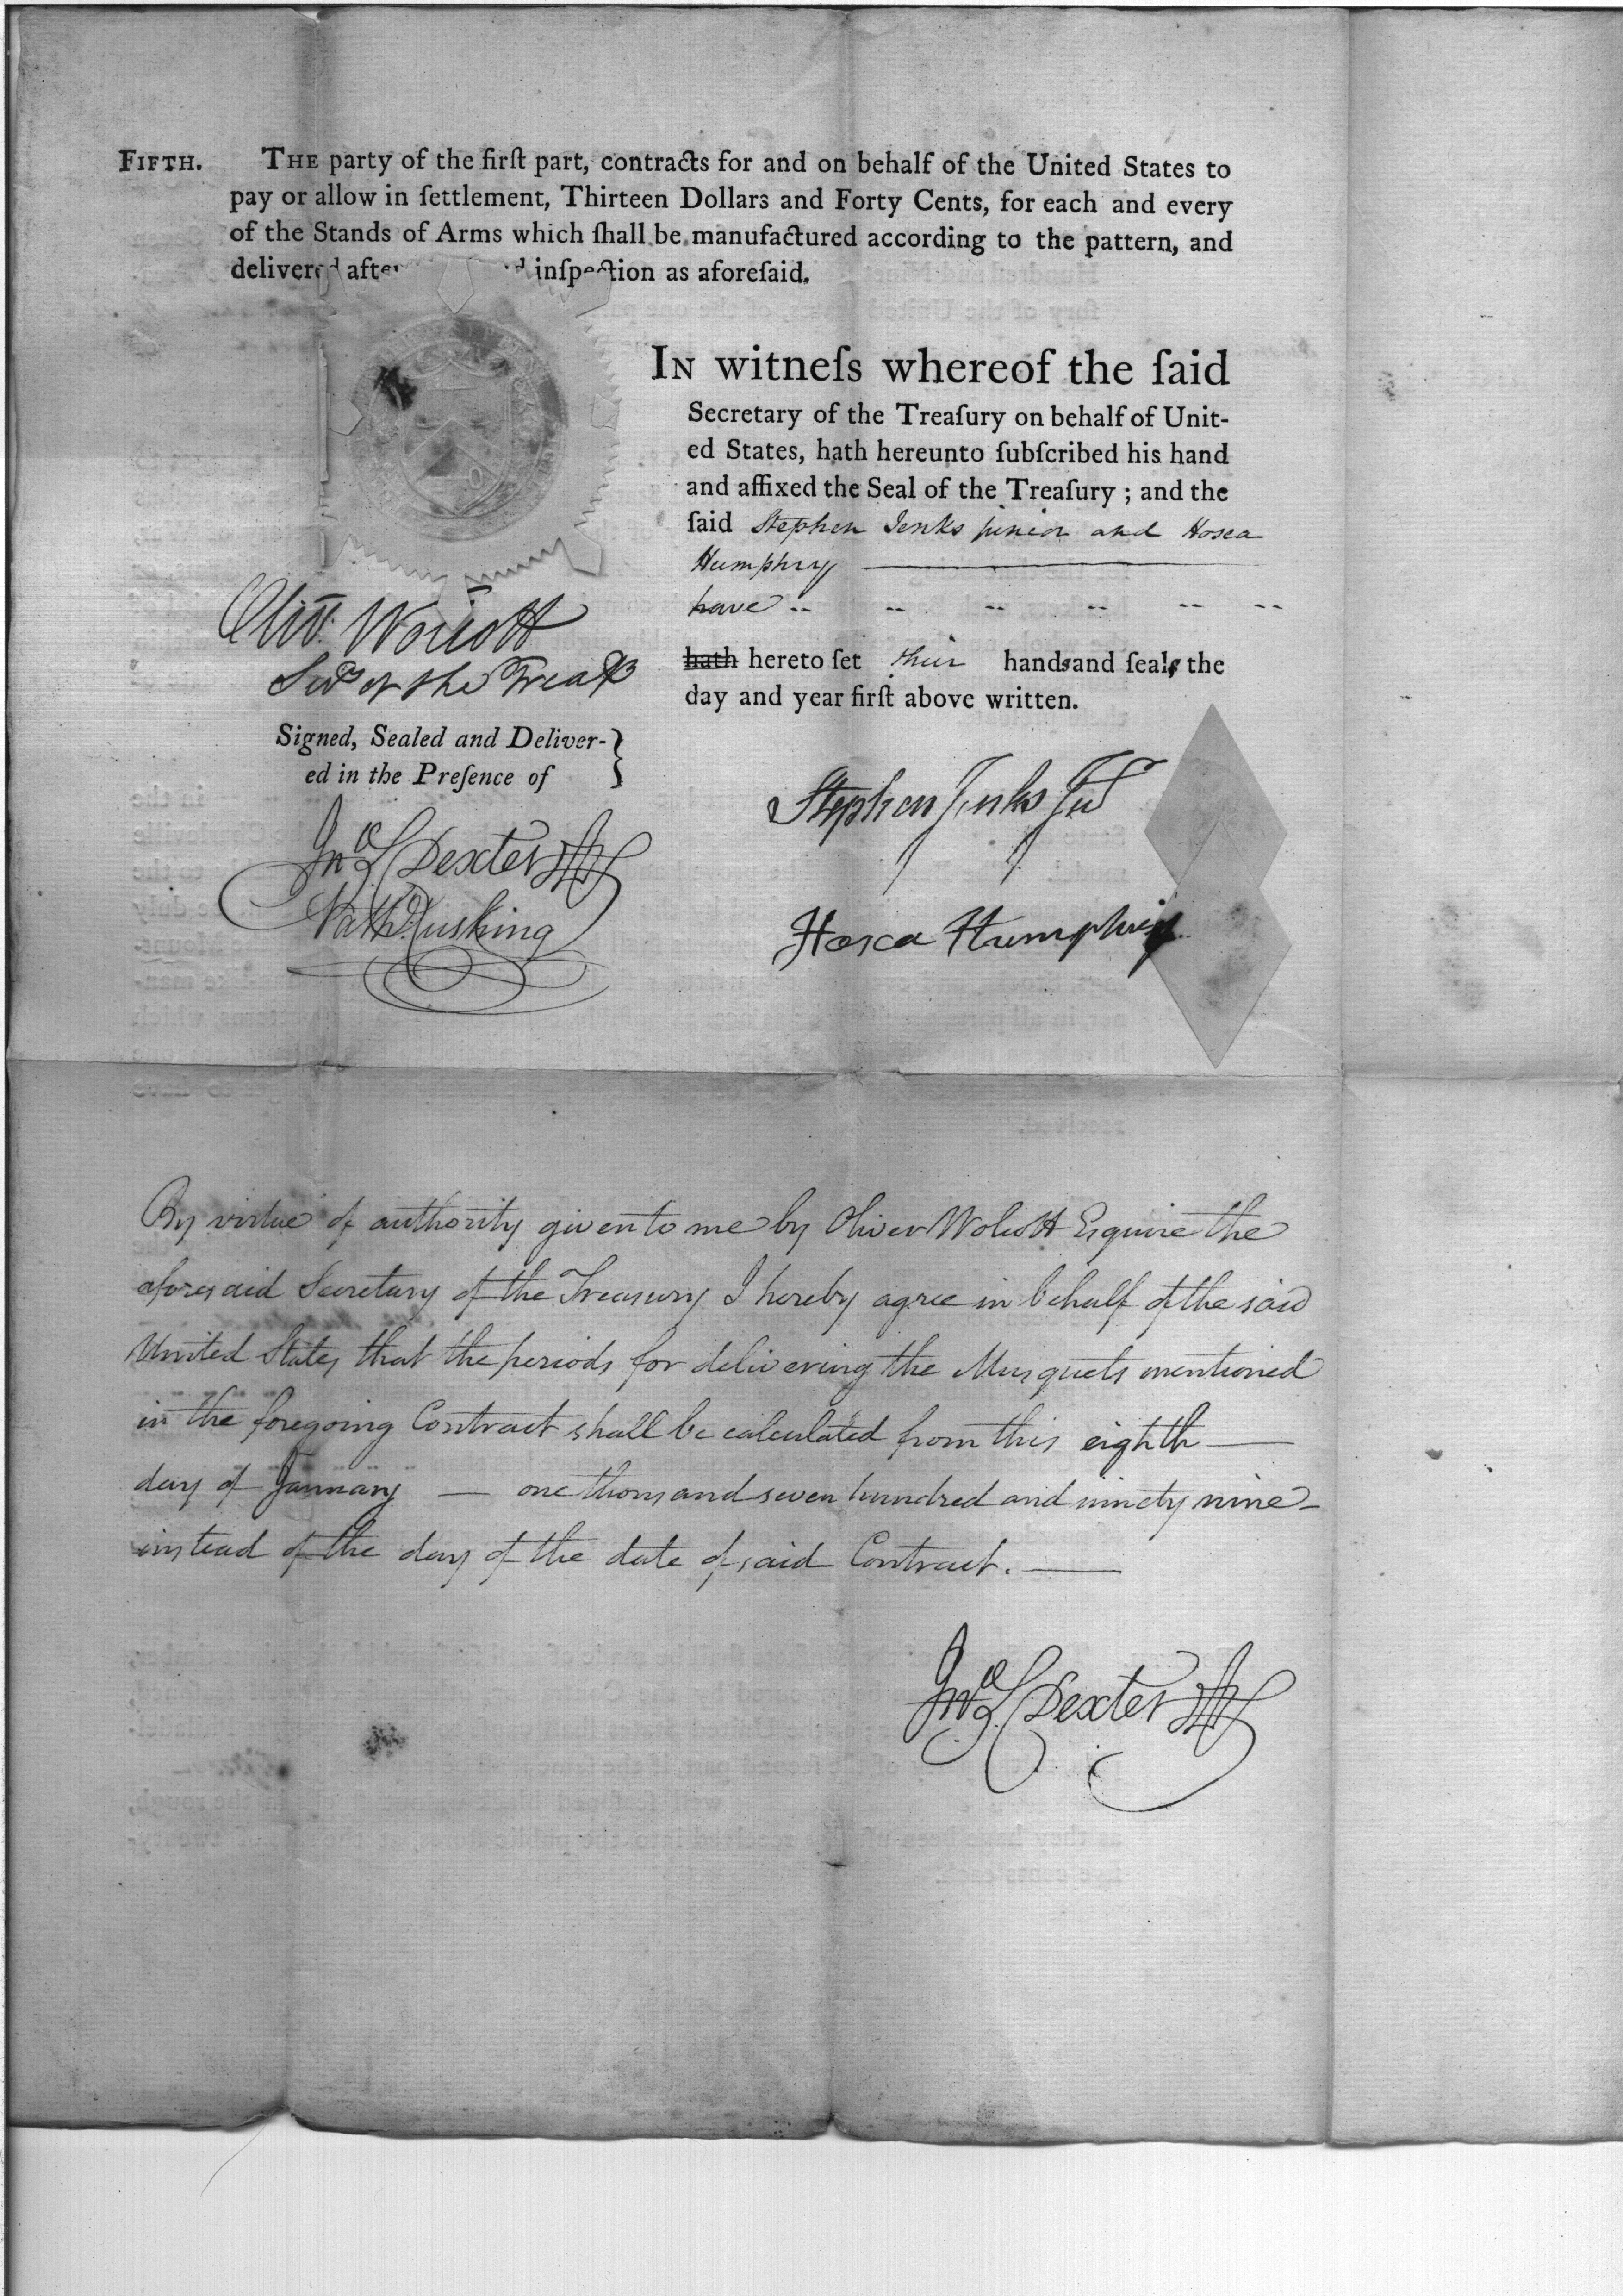 FIFTH. THE party of the firſt part, contracts for and on behalf of the United States to
pay or allow in ſettlement, Thirteen Dollars and Forty Cents, for each and every
of the Stands of Arms which ſhall be manufactured according to the pattern, and
delivered after inſpection as aforeſaid.
IN witneſs whereof the ſaid
Secretary of the Treaſury on behalf of Unit-
ed States, hath hereunto ſubſcribed his hand
and affixed the Seal of the Treaſury ; and the
ſaid Stephen Jenks junior and Hosea
Humphry
have
hath hereto ſet their hands and ſeals the
day and year firſt above written.
Oliv: Wolcott
Secy of the Treasy
Signed, Sealed and Deliver-
ed in the Preſence of }
Jno S Dexter
Nath Cushing
Stephen Jenks Jur
Hosea Humphry
By virtue of authority given to me by Oliver Wolcott Esquire the
aforesaid Secretary of the Treasury I hereby agree in behalf of the said
United States that the periods for delivering the Musquets mentioned
in the foregoing Contract shall be calculated from this eighth —
day of January — one thousand seven hundred and ninety nine —
instead of the day of the date of said Contract. —
Jno S Dexter